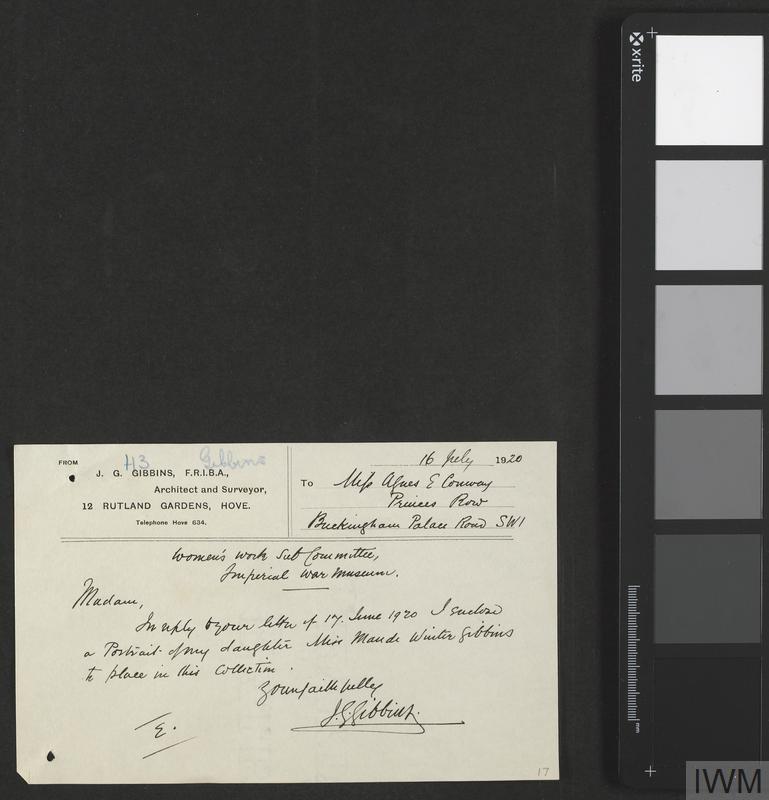 FROM
H3 Gibbins
J. G. GIBBINS, F.R.I.B.A.,
Architect and Surveyor,
12 RUTLAND GARDENS, HOVE.
Telephone Hove 634.
16 July 1920
To Miss Agnes E Conway
Princes Row
Buckingham Palace Road SW1
Women's Work Sub Committee,
Imperial War Museum.
Madam,
In reply to your letter of 17. June 1920 I enclose
a Portrait of my daughter Miss Maude Winter Gibbins
to place in this Collection.
Yours faithfully
J.G. Gibbins.
E.
17
x-rite
mm
IWM